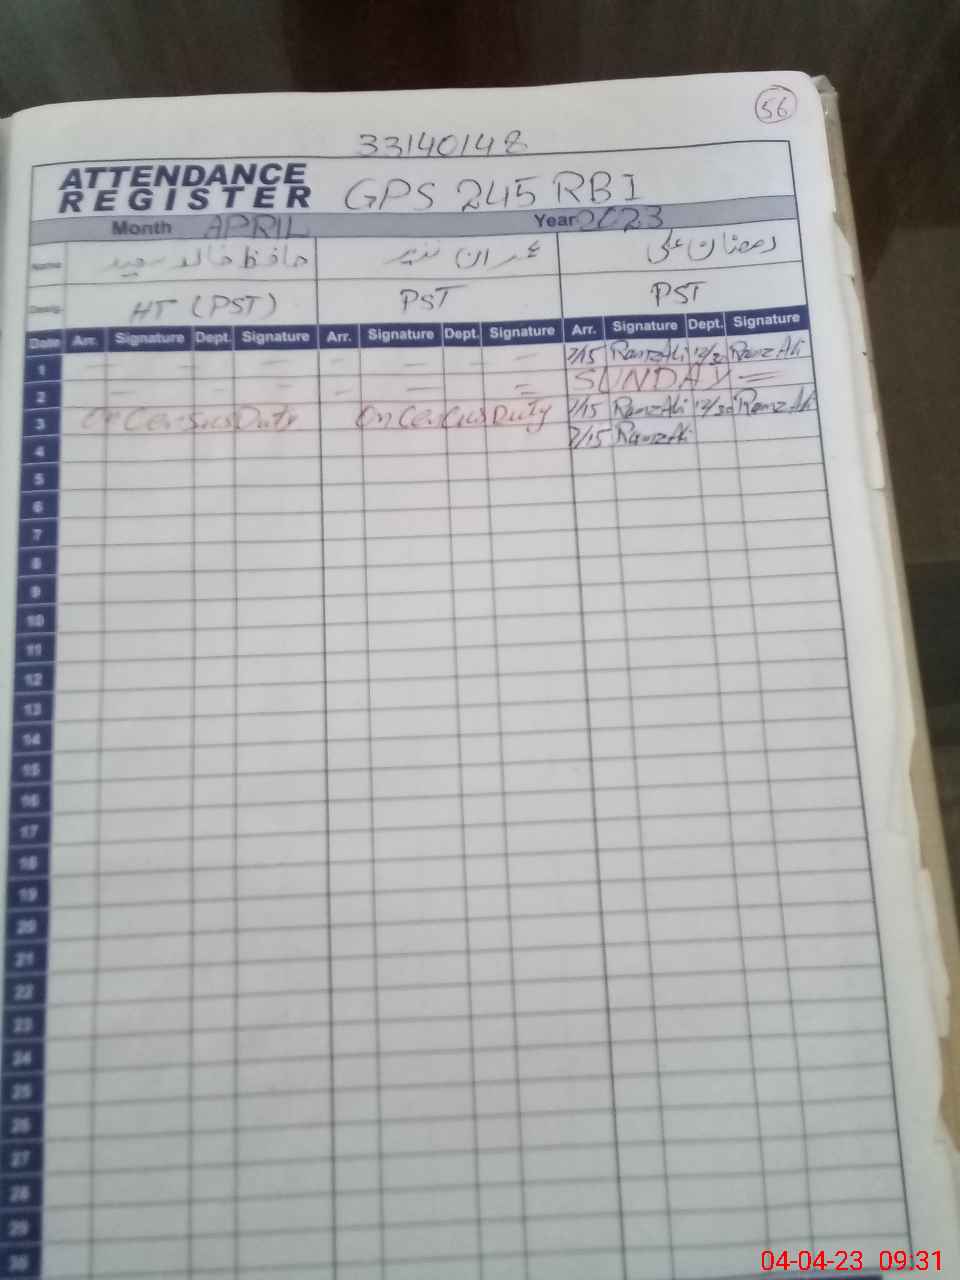 56
33140148
ATTENDANCE REGISTER GPS 245 RBI
Month APRIL Year 2023
Name حافظ خالد سعید عمران نذیر رمضان علی
Desig. HT (PST) PST PST
Date Arr. Signature Dept. Signature Arr. Signature Dept. Signature Arr. Signature Dept. Signature
1 7/15 RamzAli 12/30 RamzAli
2 SUNDAY
3 On Census Duty On Census Duty 7/15 RamzAli 12/30 RamzAli
4 7/15 RamzAli
5
6
7
8
9
10
11
12
13
14
15
16
17
18
19
20
21
22
23
24
25
26
27
28
29
30
04-04-23 09:31